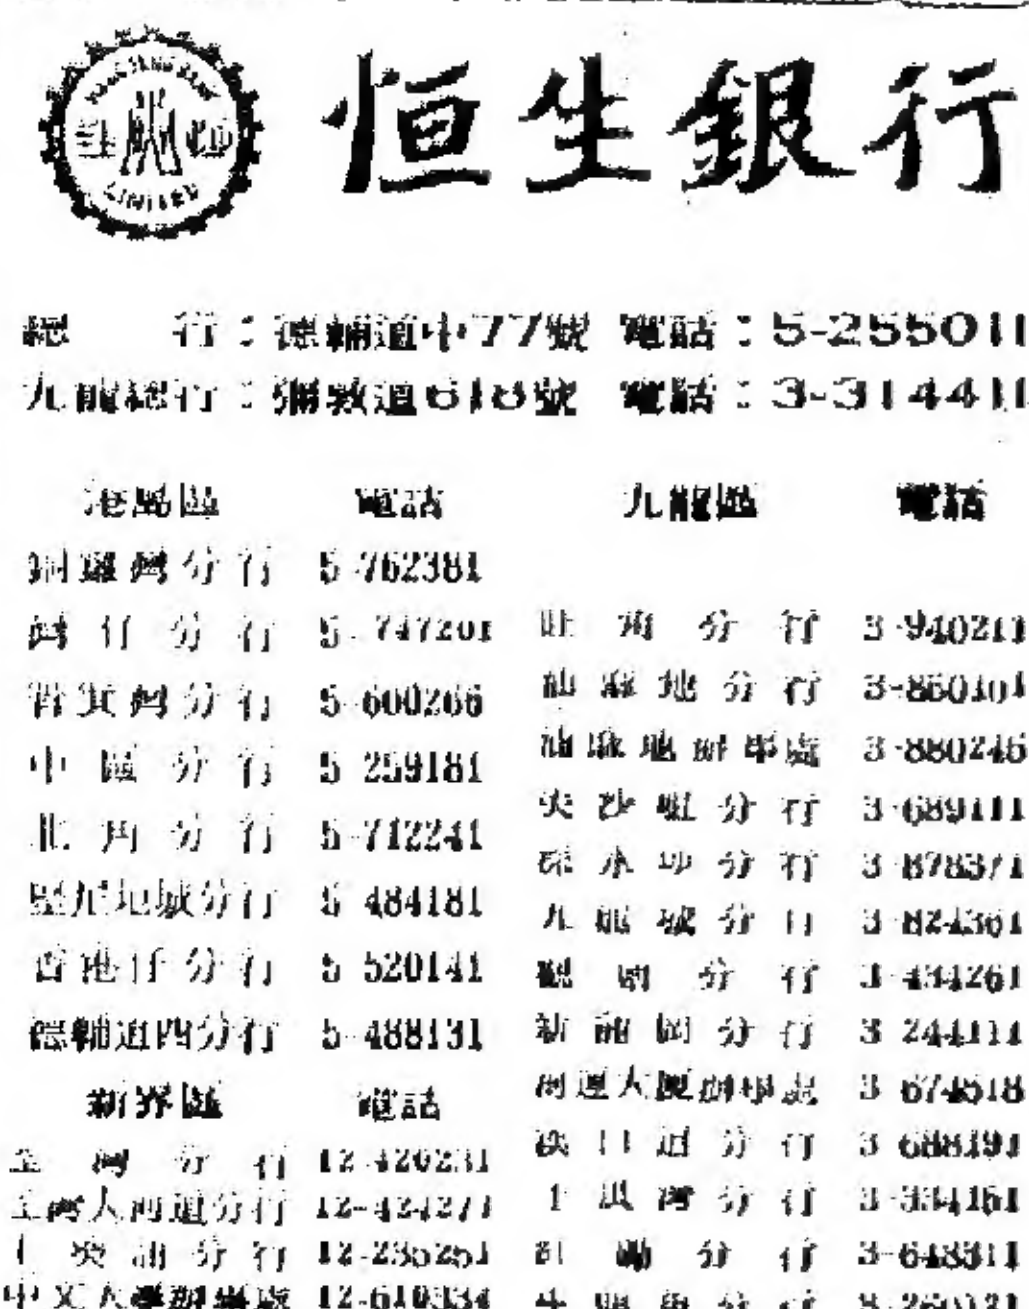 恒生銀行
LIMITED
總行：德輔道中77號 電話：5-255011
九龍總行：彌敦道618號 電話：3-314411
港島區 電話
銅鑼灣分行 5-762381
灣仔分行 5-747201
筲箕灣分行 5-600266
中區分行 5-259181
北角分行 5-712241
堅尼地城分行 5-484181
香港仔分行 5-520141
德輔道西分行 5-488131
新界區 電話
荃灣分行 12-420231
荃灣大河道分行 12-424271
分行 12-235251
中文大學辦事處 12-610334
九龍區 電話
旺角分行 3-940211
油麻地分行 3-850101
油麻地辦事處 3-880245
尖沙咀分行 3-689111
深水埗分行 3-878371
九龍城分行 3-824361
觀塘分行 3-434261
新蒲崗分行 3-244111
海運大廈辦事處 3-674518
漢口道分行 3-688191
土瓜灣分行 3-334151
紅磡分行 3-648311
分行 3-250131